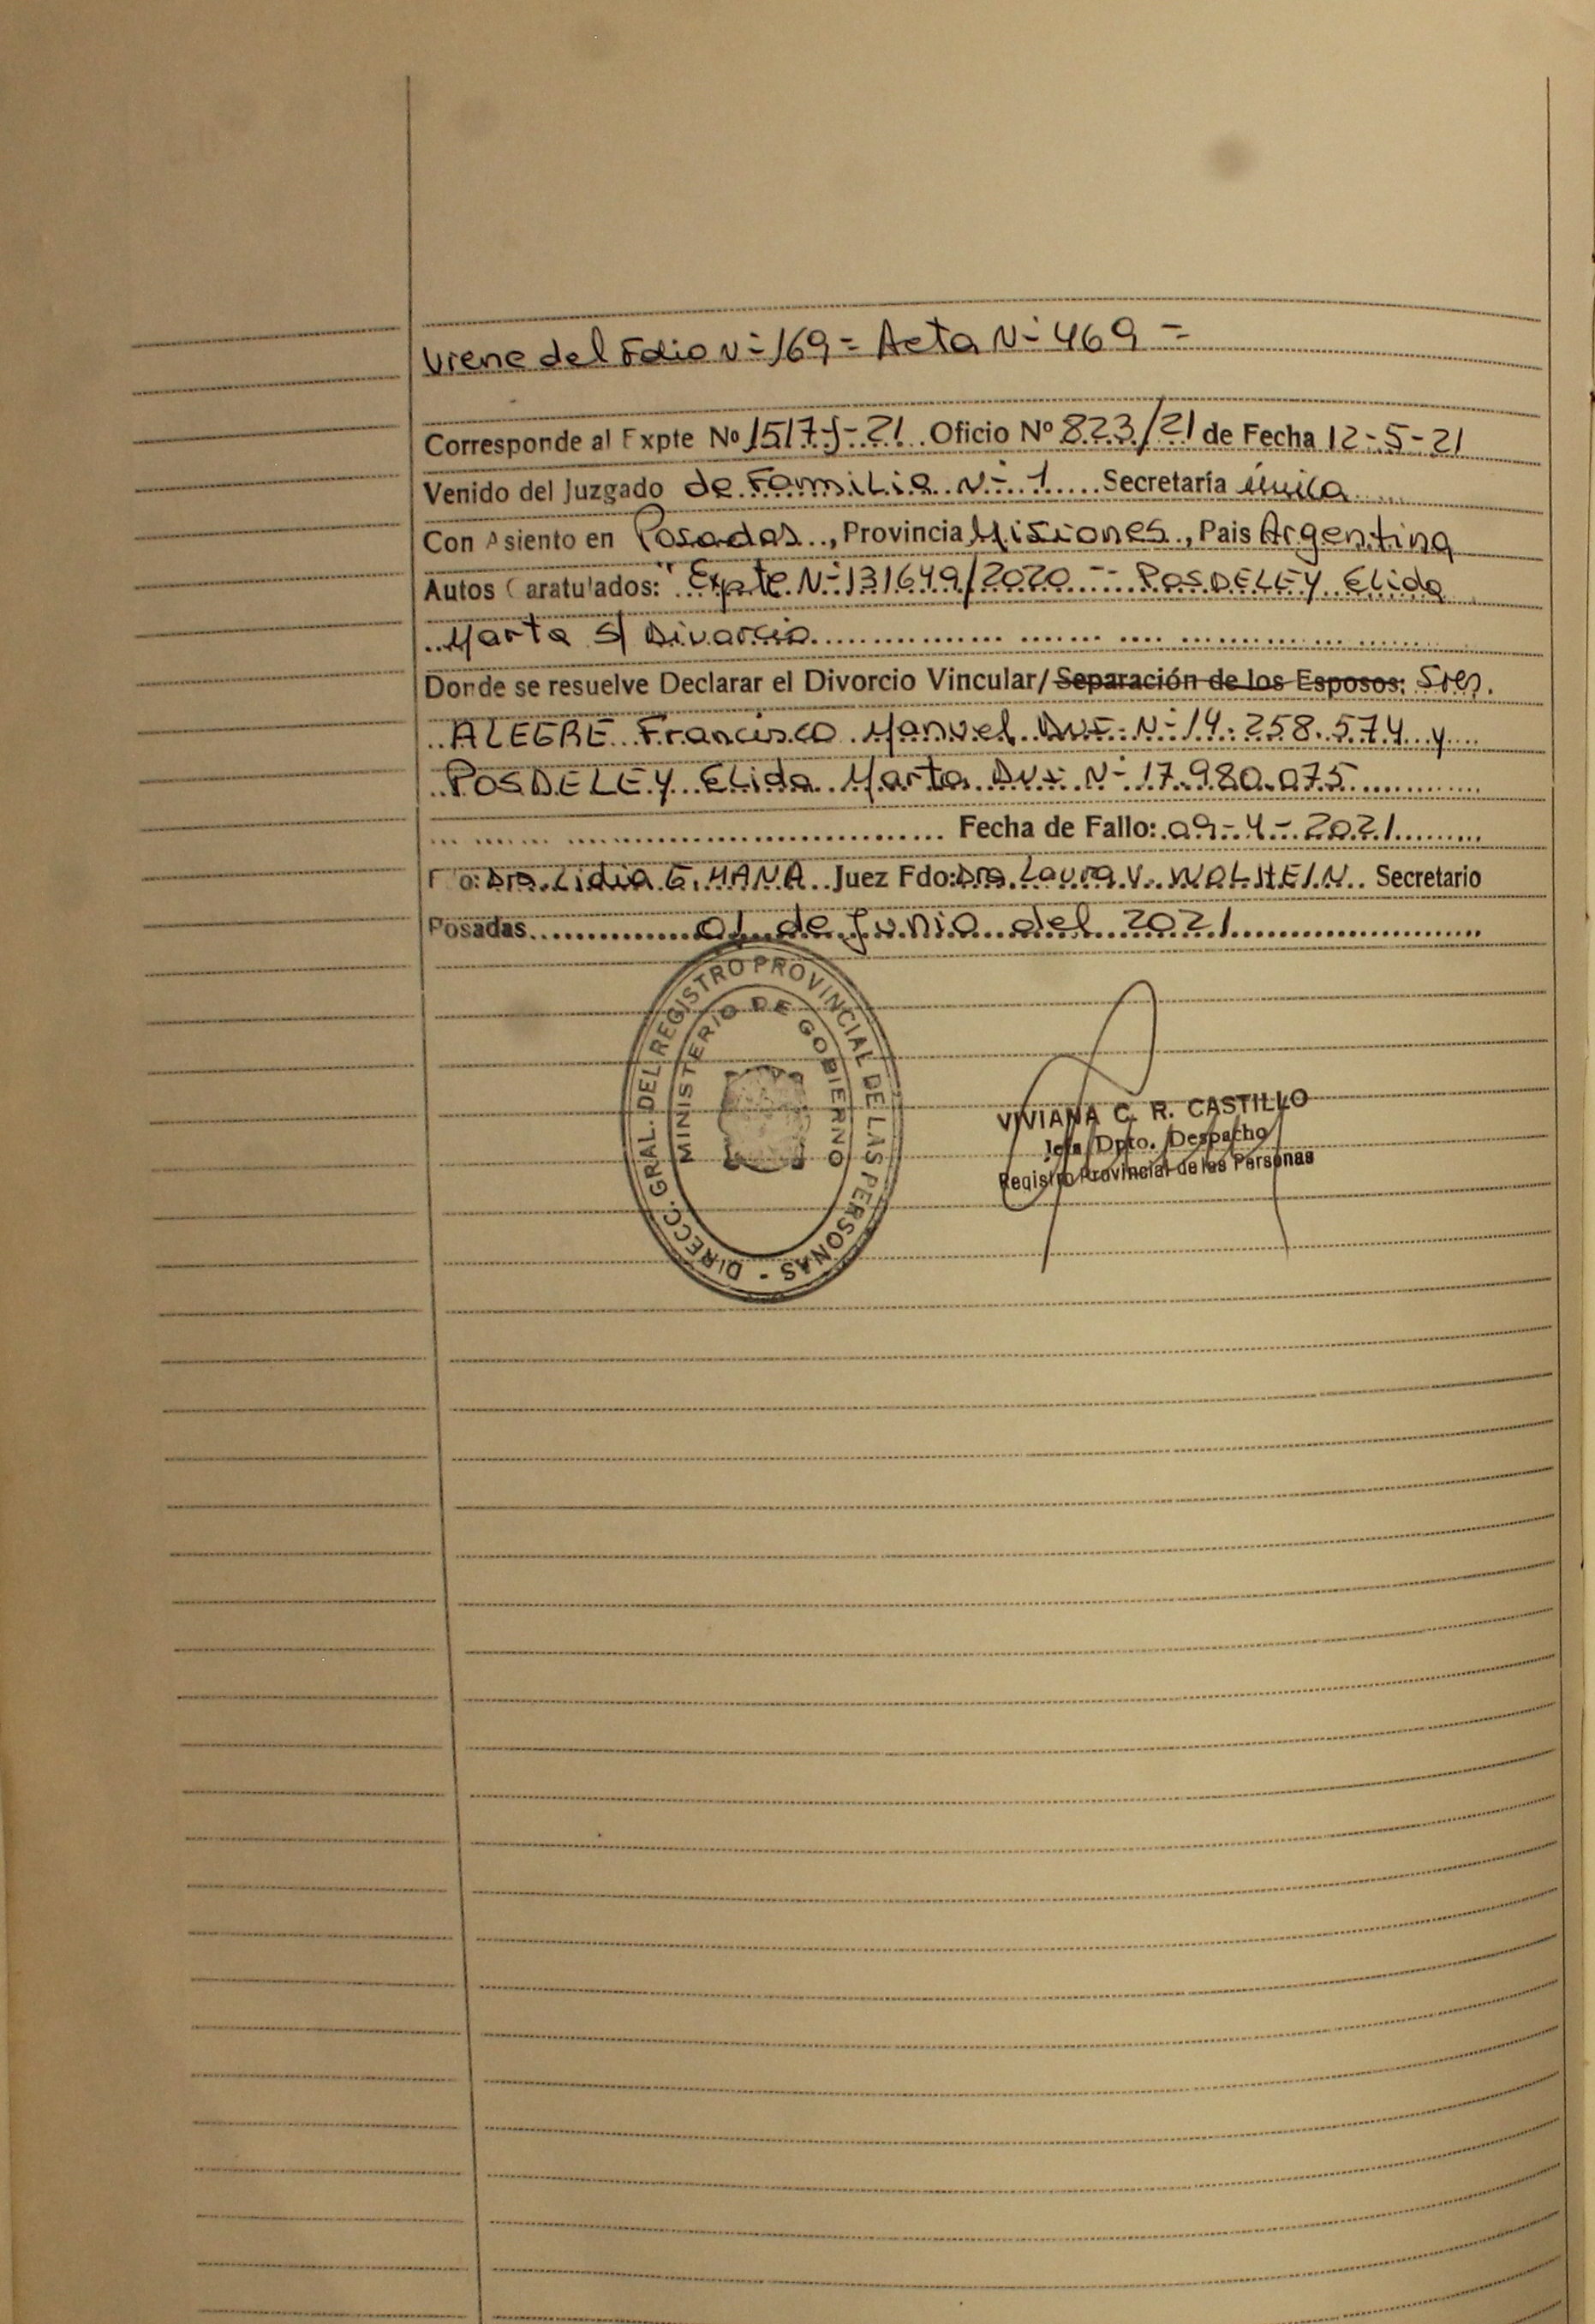 Viene del Folio Nº 169 = Acta Nº 469 =
Corresponde al Expte Nº 1517-J-21 Oficio Nº 823/21 de Fecha 12-5-21
Venido del Juzgado de Familia Nº 1 Secretaría única
Con Asiento en Posadas, Provincia Misiones, Pais Argentina
Autos Caratulados: "Expte Nº 131649/2020 - POSDELEY Elida
Marta S/ Divorcio
Donde se resuelve Declarar el Divorcio Vincular/Separación de los Esposos: Sres.
ALEGRE Francisco Manuel DNI Nº 14.258.574 y
POSDELEY Elida Marta DNI Nº 17.980.075
Fecha de Fallo: 09-4-2021
Fdo: Dra. Lidia G. MANA Juez Fdo: Dra. Laura V. WOLHEIN Secretario
Posadas 01 de Junio del 2021
DIRECC. GRAL. DEL REGISTRO PROVINCIAL DE LAS PERSONAS -
MINISTERIO DE GOBIERNO
VIVIANA C. R. CASTILLO
Jefa Dpto. Despacho
Registro Provincial de las Personas